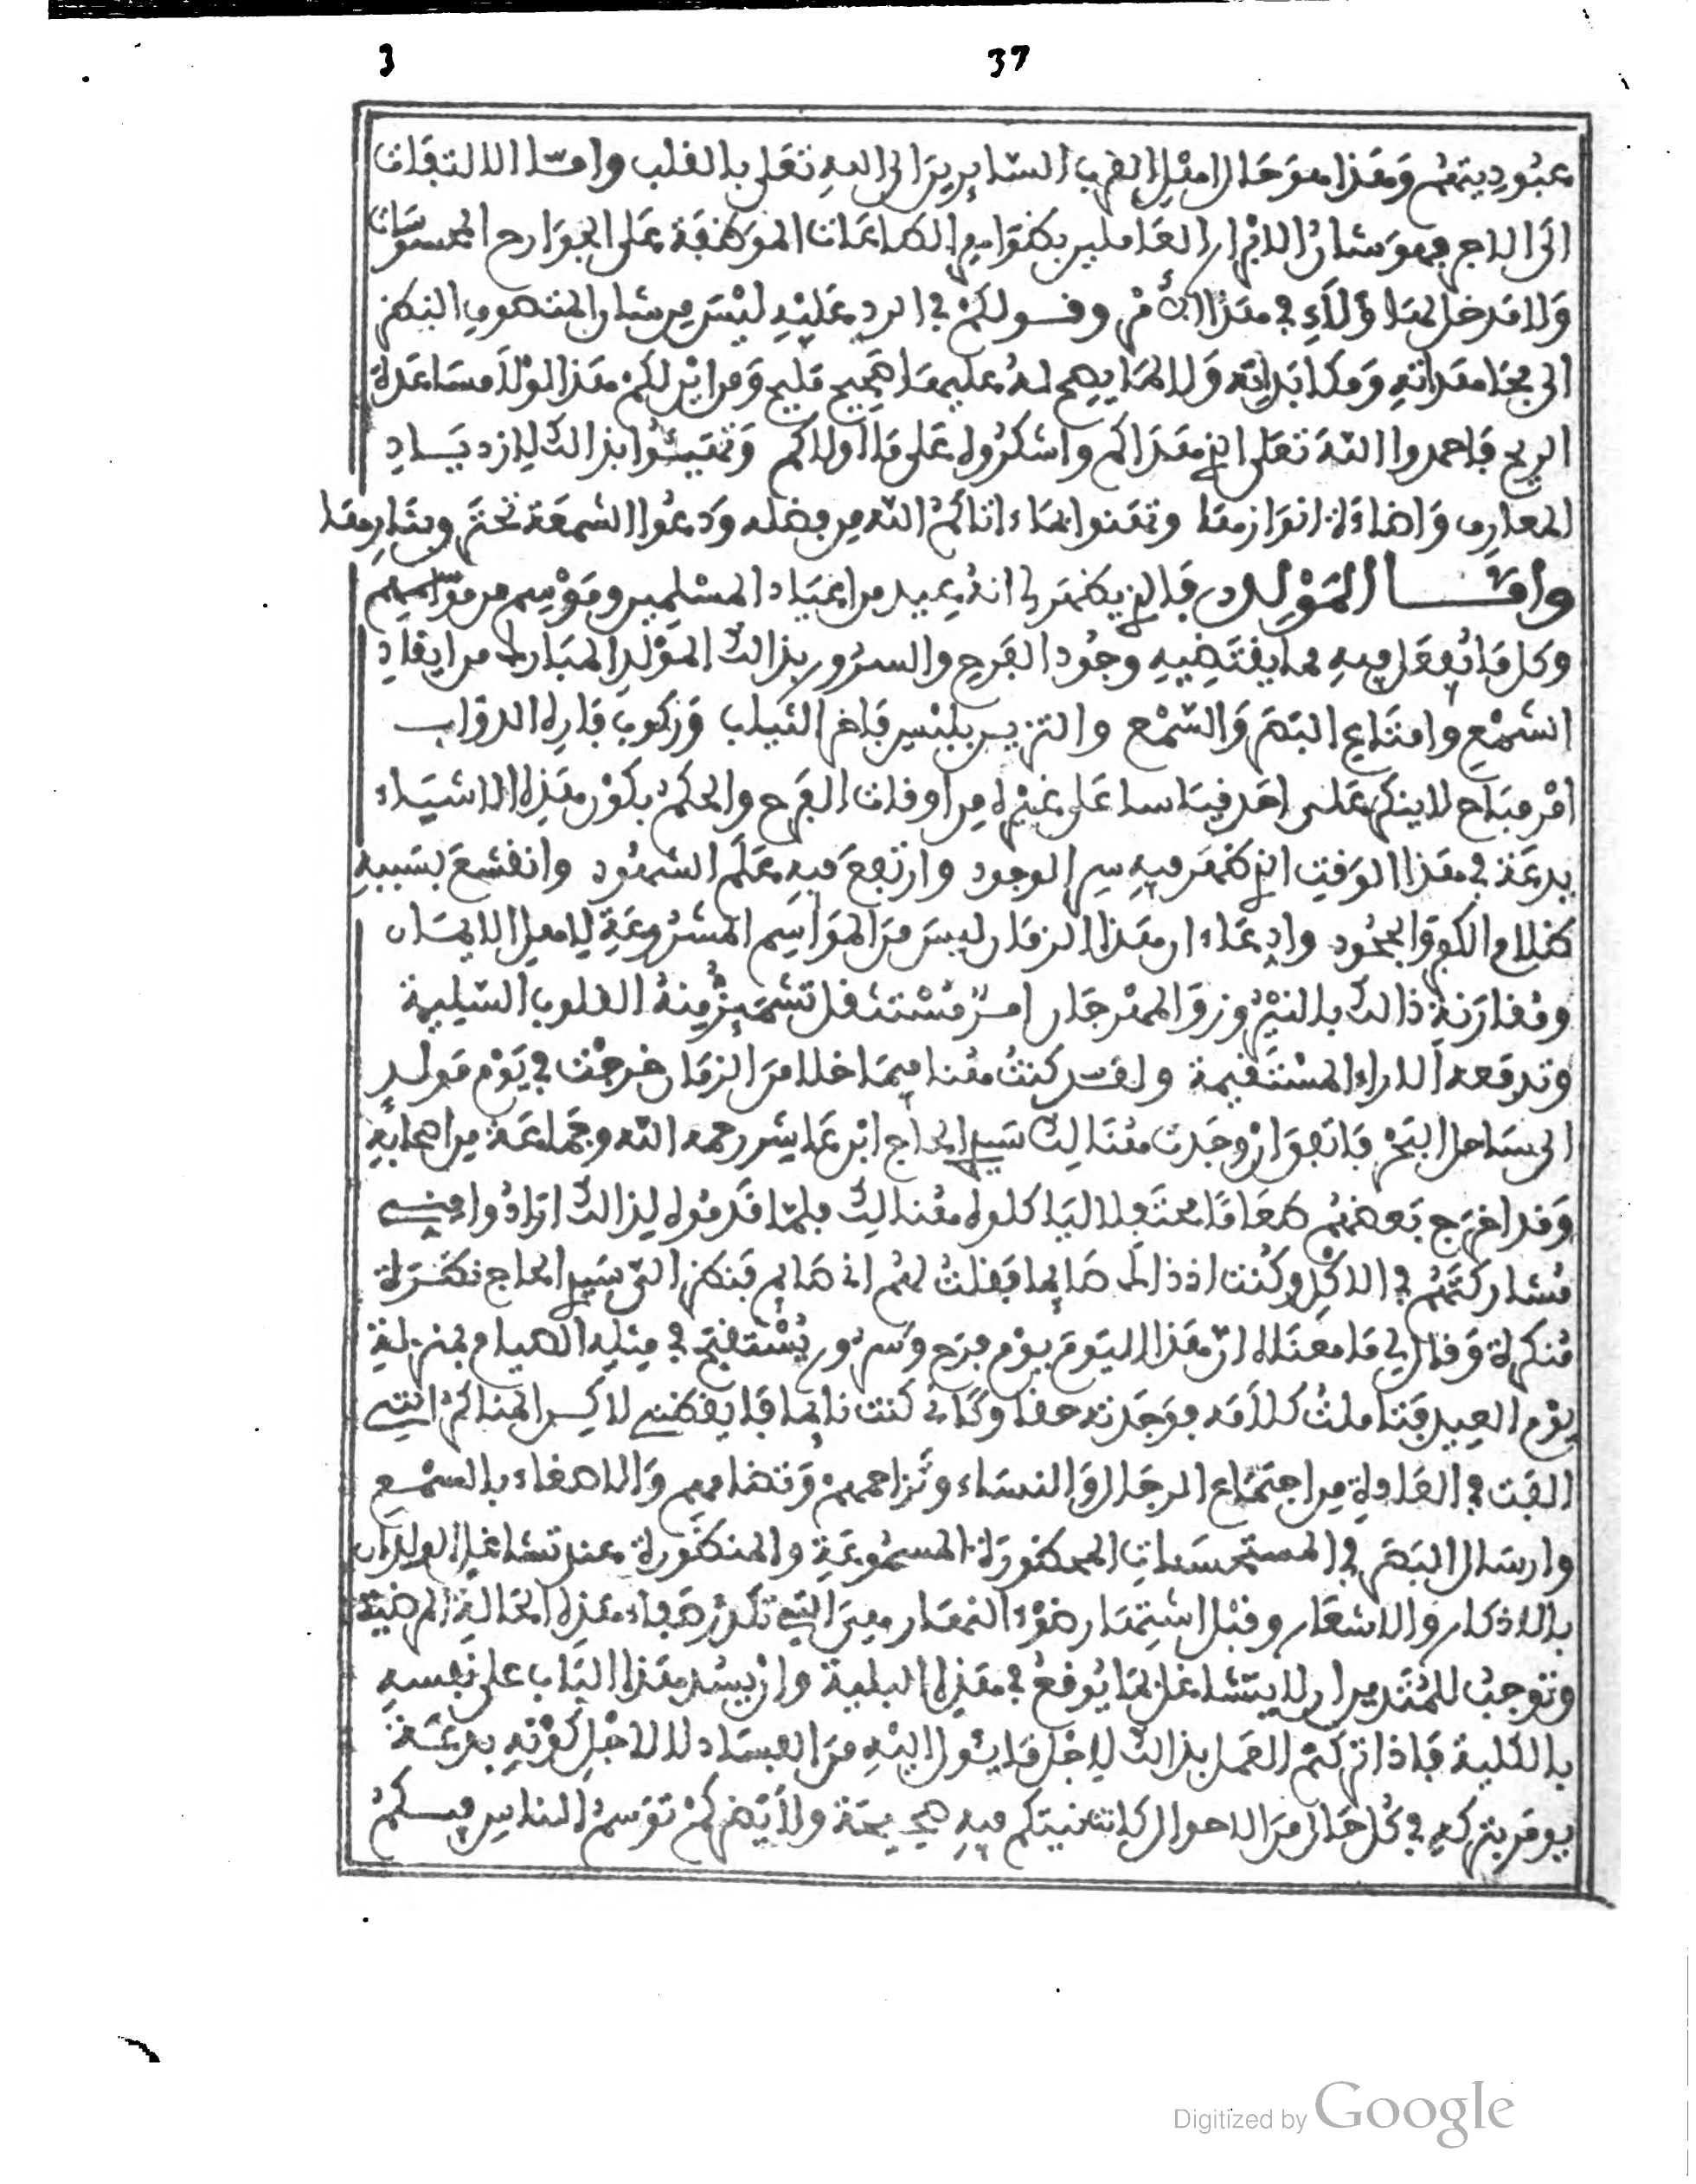 3 37
عبوديتهم وهذا هو حال اهل القرب السايرين الى الله تعلى بالقلب واما الالتفات
الى الاجر فهو شان الابرار العاملين بظواهر الطاعات الموظفة على الجوارح المحسوسات
ولا مدخل لهاؤلاء في هذا الامر وقولكم في الرد عليه ليس من شان الصوفي النظر
الى مجاهداته ومكابداته ولا لما يهجم له عليها صحيح مليح ومن اين لكم هذا لولا مساعدة
الريح فاحمدوا الله تعلى الذي هداكم واشكروه على ما اولاكم وتهيئوا بذالك لازدياد
المعارف واضاءة انوارها وتهنوا بما ءاتاكم الله من فضله ودعوا الشمعة تحترق بنارها
وامـا المولد فالذي يظهر لي انه عيد من اعياد المسلمين وموسم من مواسمهم
وكل ما يفعل فيه مما يقتضيه وجود الفرح والسرور بذالك المولد المبارك من ايقاد
الشمع وامتاع البصر والسمع والتزين بلبس فاخر الثياب وركوب فاره الدواب
امر مباح لا ينكر على احد قياسا على غيره من اوقات الفرح والحكم بكون هذه الاشياء
بدعة في هذا الوقت الذي ظهر فيه سر الوجود وارتفع فيه علم الشهود وانقشع بسببه
ظلام الكفر والجحود وادعاء ان هذا الزمان ليس من المواسم المشروعة لاهل الايمان
ومقارنة ذالك بالنيروز والمهرجان امر مستثقل تشمئز منه القلوب السليمة
وتدفعه الاراء المستقيمة ولقد كنت هنا فيما خلا من الزمان خرجت في يوم مولد
الى ساحل البحر فاتفق ان وجدت هنالك سيدي الحاج ابن عاشر رحمه الله وجماعة من اصحابه
وقد اخرج بعضهم طعاما محتفلا لياكلوه هنالك فلما قدموه لذالك ارادوا مني
مشاركتهم في الاكل وكنت اذ ذاك صايما فقلت لهم اني صايم فنظر الي سيدي الحاج نظرة
منكرة وقال لي ما معناه ان هذا اليوم يوم فرح وسرور يستقبح في مثله الصيام بمنزلة
يوم العيد فتاملت كلامه فوجدته حقا وكاني كنت نايما فايقظني لاكن المناكر التي
الفت في العادة من اجتماع الرجال والنساء وتزاحمهم وتضامهم والاصغاء بالسمع
وارسال البصر في المستحسنات المحظورة المسموعة والمنظورة عند تشاغل الولدان
بالاذكار والاشعار وقبل اشتهار ضوء النهار هي التي تكدر صفاء هذه الحالة المرضية
وتوجب للمتدين ان لا يتشاغل بما يوقع في هذه البلية وان يسد هذا الباب على نفسه
بالكلية فاذا تركتم العمل بذالك لاجل ما يئول اليه من الفساد لا لاجل كونه بدعة
يومر بتركه في كل حال من الاحوال كانت نيتكم فيه صحيحة ولا يضركم توسم الناس فيكم
Digitized by Google